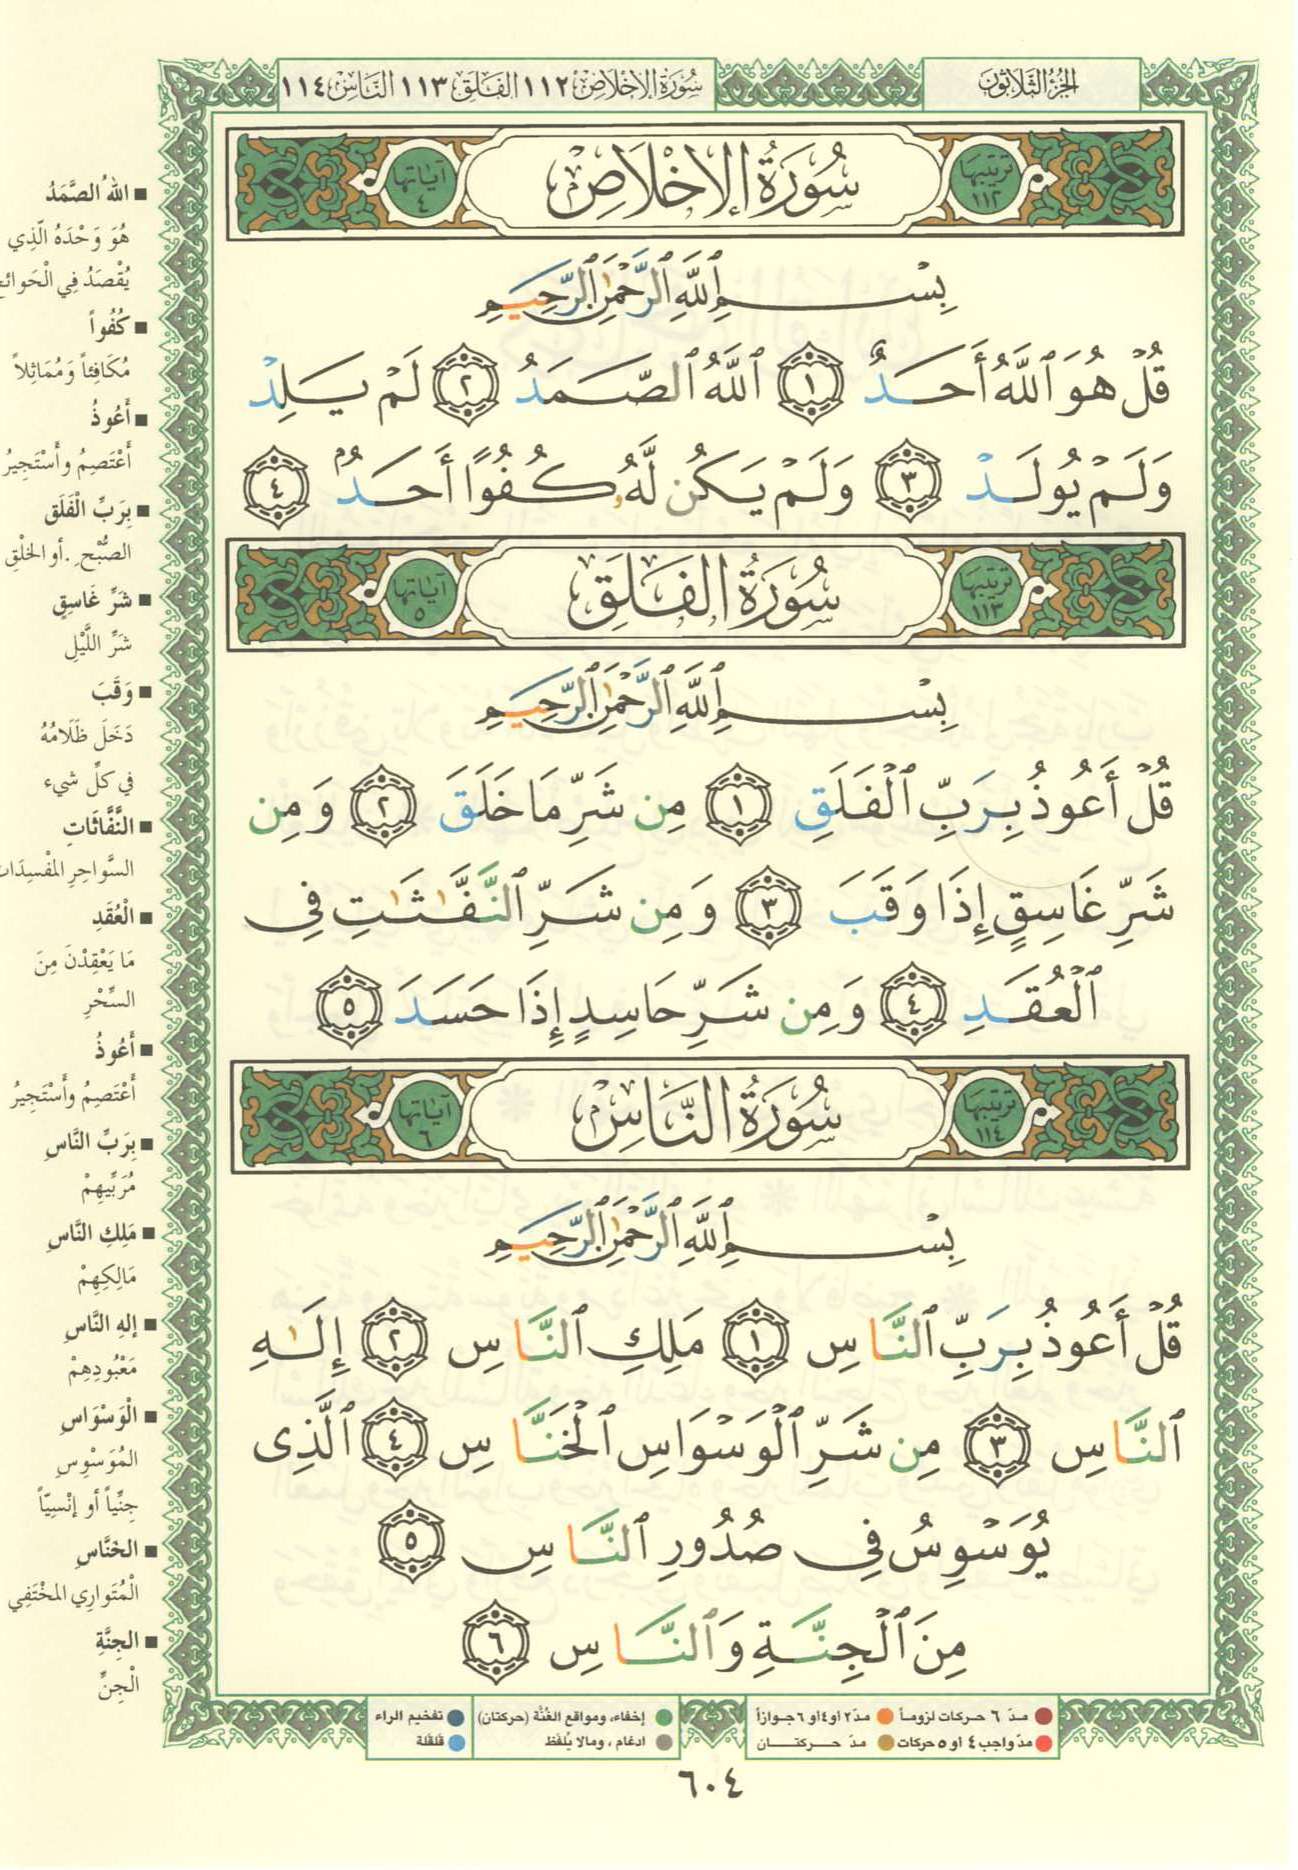 الجزء الثلاثون
سورة الإخلاص ١١٢ الفلق ١١٣ الناس ١١٤
ترتيبها ١١٢
سُورَةُ الإِخْلَاصِ
آياتها ٤
بِسْمِ ٱللَّهِ ٱلرَّحْمَٰنِ ٱلرَّحِيمِ
قُلْ هُوَ ٱللَّهُ أَحَدٌ ١ ٱللَّهُ ٱلصَّمَدُ ٢ لَمْ يَلِدْ
وَلَمْ يُولَدْ ٣ وَلَمْ يَكُن لَّهُۥ كُفُوًا أَحَدٌۢ ٤
ترتيبها ١١٣
سُورَةُ الفَلَقِ
آياتها ٥
بِسْمِ ٱللَّهِ ٱلرَّحْمَٰنِ ٱلرَّحِيمِ
قُلْ أَعُوذُ بِرَبِّ ٱلْفَلَقِ ١ مِن شَرِّ مَا خَلَقَ ٢ وَمِن
شَرِّ غَاسِقٍ إِذَا وَقَبَ ٣ وَمِن شَرِّ ٱلنَّفَّٰثَٰتِ فِى
ٱلْعُقَدِ ٤ وَمِن شَرِّ حَاسِدٍ إِذَا حَسَدَ ٥
ترتيبها ١١٤
سُورَةُ النَّاسِ
آياتها ٦
بِسْمِ ٱللَّهِ ٱلرَّحْمَٰنِ ٱلرَّحِيمِ
قُلْ أَعُوذُ بِرَبِّ ٱلنَّاسِ ١ مَلِكِ ٱلنَّاسِ ٢ إِلَٰهِ
ٱلنَّاسِ ٣ مِن شَرِّ ٱلْوَسْوَاسِ ٱلْخَنَّاسِ ٤ ٱلَّذِى
يُوَسْوِسُ فِى صُدُورِ ٱلنَّاسِ ٥
مِنَ ٱلْجِنَّةِ وَٱلنَّاسِ ٦
■ اللهُ الصَّمَدُ
هُوَ وَحْدَهُ الَّذِي
يُقْصَدُ فِي الْحَوائج
■ كُفُواً
مُكَافِئاً وَمُمَاثِلاً
■ أَعُوذُ
أَعْتَصِمُ وأَسْتَجِيرُ
■ بِرَبِّ الْفَلَق
الصُّبْحِ. أو الخلْقِ
■ شَرِّ غَاسِقٍ
شَرِّ اللَّيْلِ
■ وَقَبَ
دَخَلَ ظَلَامُهُ
في كلِّ شيء
■ النَّفَّاثَاتِ
السَّواحِرِ المفْسِدَات
■ الْعُقَدِ
مَا يَعْقِدْنَ مِنَ
السِّحْرِ
■ أَعُوذُ
أَعْتَصِمُ وأَسْتَجِيرُ
■ بِرَبِّ النَّاسِ
مُرَبِّيهِمْ
■ مَلِكِ النَّاسِ
مَالِكِهِمْ
■ إلهِ النَّاسِ
مَعْبُودِهِمْ
■ الْوَسْوَاسِ
المُوَسْوِسِ
جِنِّياً أو إنْسِيّاً
■ الخنَّاسِ
الْمُتَوارِي المخْتَفِي
■ الجِنَّةِ
الْجِنِّ
مدّ ٦ حركات لزوماً مدّ ٢ او ٤ او ٦ جوازاً
مدّ واجب ٤ او ٥ حركات مدّ حركتان
إخفاء، ومواقع الغُنَّة (حركتان)
ادغام ، ومالا يُلفَظ
تفخيم الراء
قلقلة
٦٠٤